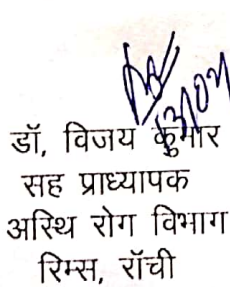 13/07
डॉ, विजय कुमार
सह प्राध्यापक
अस्थि रोग विभाग
रिम्स, रॉची